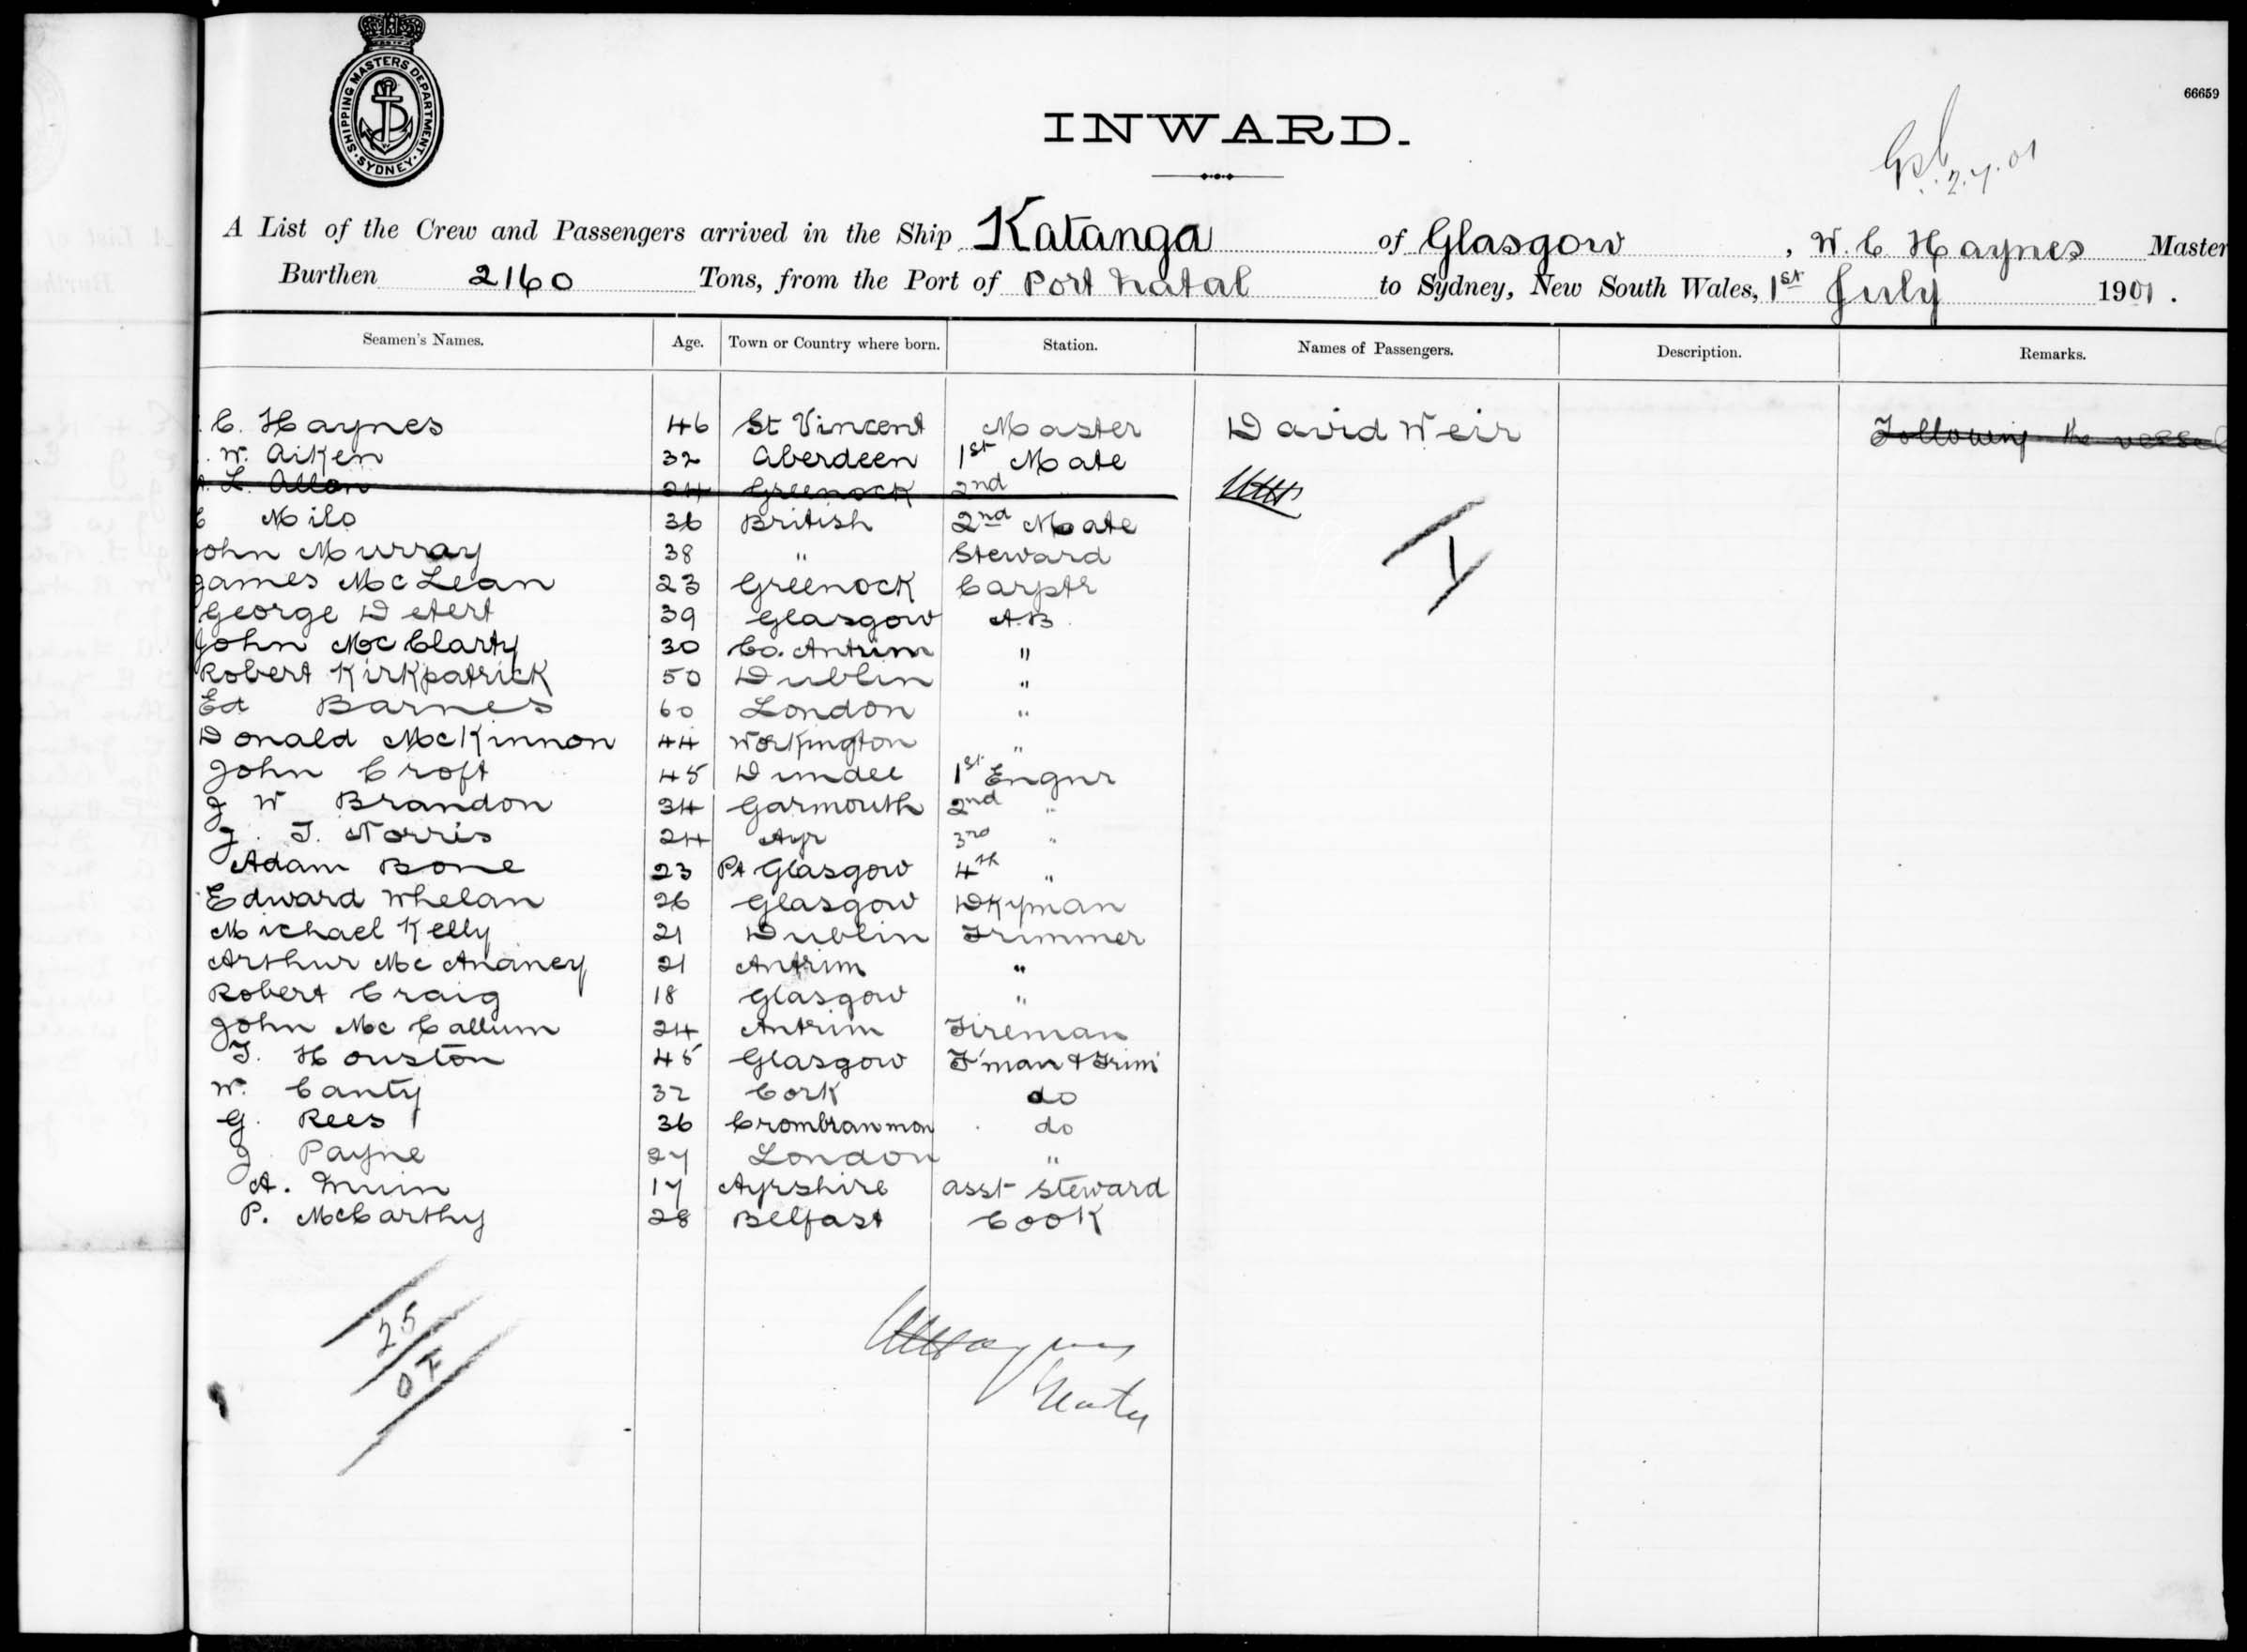 SHIPPING MASTERS DEPARTMENT · SYDNEY ·
66659
INWARD.
2.7.01
A List of the Crew and Passengers arrived in the Ship Katanga of Glasgow, W. C Haynes Master
Burthen 2160 Tons, from the Port of Port Natal to Sydney, New South Wales, 1st July 1901.
Seamen's Names. Age. Town or Country where born. Station. Names of Passengers. Description. Remarks.
C. Haynes 46 St Vincent Master David Weir Following the vessel
W. Aiken 32 Aberdeen 1st Mate
L. Allan 24 Greenock 2nd
Milo 36 British 2nd Mate
John Murray 38 " Steward
James McLean 23 Greenock Carptr
George Detert 39 Glasgow A.B.
John McClarty 30 Co. Antrim "
Robert Kirkpatrick 50 Dublin "
Ed Barnes 60 London "
Donald McKinnon 44 Workington "
John Croft 45 Dundee 1st Engnr
J W Brandon 34 Garmouth 2nd "
J. T. Norris 24 Ayr 3rd "
Adam Bone 23 Pt Glasgow 4th "
Edward Whelan 26 Glasgow Dkyman
Michael Kelly 21 Dublin Trimmer
Arthur McAnaney 21 Antrim "
Robert Craig 18 Glasgow "
John McCallum 24 Antrim Fireman
T. Houston 45 Glasgow F'man & Trim
W. Canty 32 Cork do
G. Rees 36 do
J Payne 27 London "
A. Muin 17 Ayrshire asst Steward
P. McCarthy 28 Belfast Cook
25
Haynes
Master